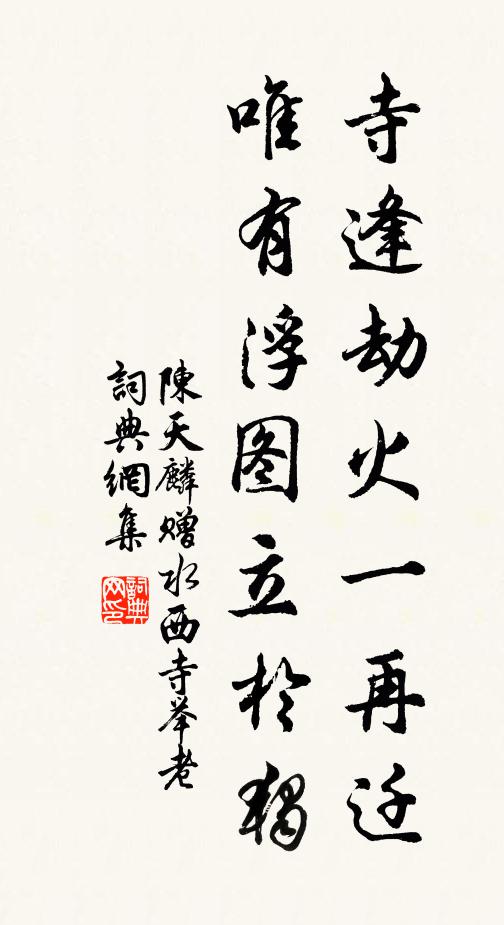 寺逢劫火一再迁
唯有浮图立於独
陳天麟赠水西寺举老
詞典網集
詞典网印